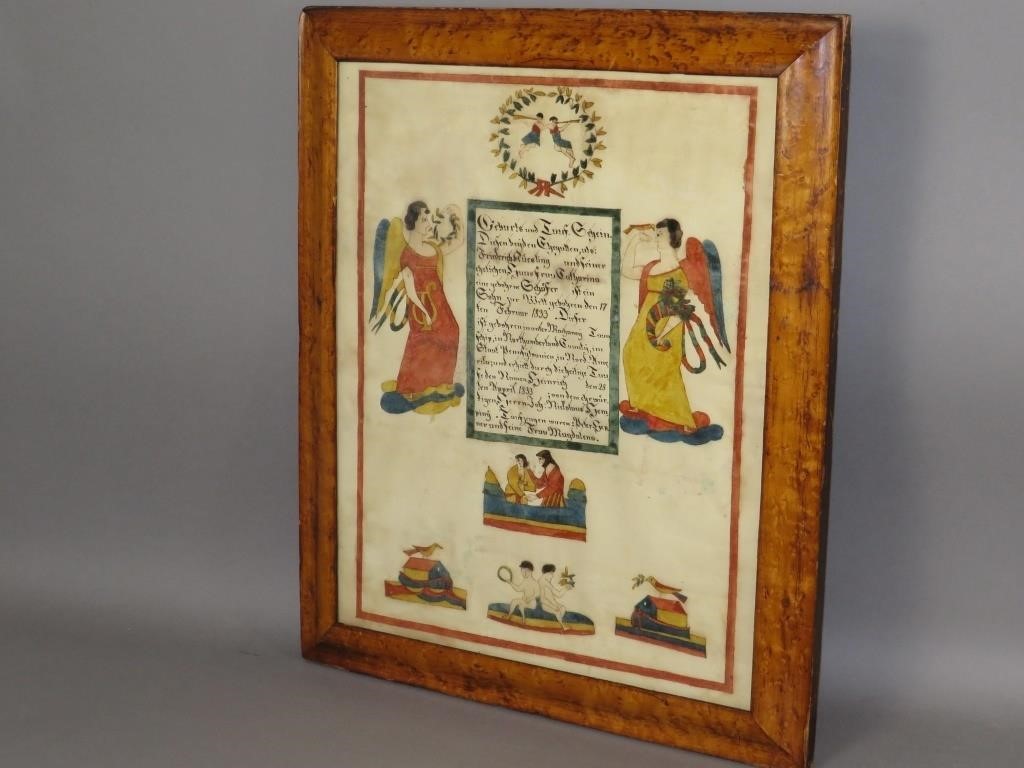 Geburts und Tauf Schein.
Diesen beyden Ehegatten, als:
Friederich Kiesling und seiner
ehelichen Haus Frau Catharina
eine gebohrne Schäfer ist ein
Sohn zur Welt gebohren den 17
ten Februar 1833. Dieser
ist gebohren in unter Machanoy Taun
schip, in Northumberland Caundty, im
Staat Pennsylvanien, in Nord Ame
rica und erhielt durch die heilige Tau
fe den Namen Heinrich den 28
den Appril 1833 von dem ehrwür
digen Herrn Joh. Nicolaus Hem
ping. Taufzeugen waren: Peter
ner und seine Frau Magdalena.